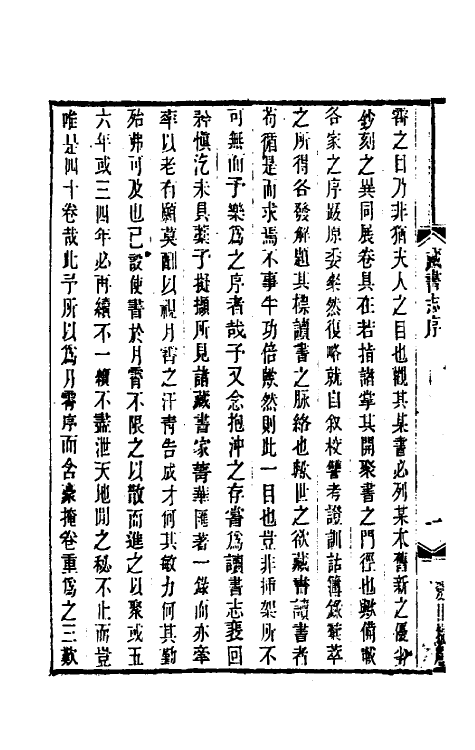 霄之目乃非猶夫人之目也觀其某書必列某本舊新之優劣
鈔刻之異同展卷具在若指諸掌其開聚書之門徑也歟備載
各家之序跋原委粲然復略就自叙校讐考證訓詁簿錄彙萃
之所得各發解題其標讀書之脈絡也歟世之欲藏書讀書者
苟循是而求焉不事半功倍歟然則此一目也豈非插架所不
可無而予樂爲之序者哉予又念抱沖之存書爲讀書志裴回
矜愼汔未具藁予擬擷所見諸藏書家菁華匯著一錄而亦牽
率以老有願莫酬以視月霄之汗青告成才何其敏力何其勤
殆弗可及也已設使書於月霄不限之以散而進之以聚或五
六年或三四年必再續不一續不盡泄天地閒之秘不止而豈
唯是四十卷哉此予所以爲月霄序而含豪掩卷重爲之三歎
藏書志序
一